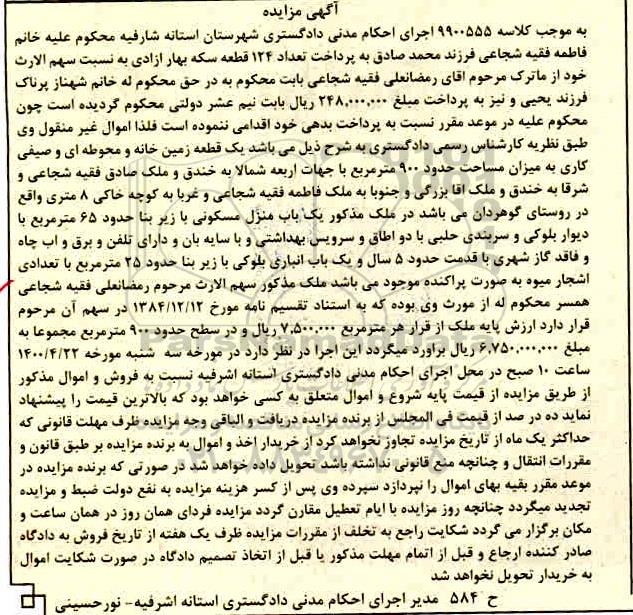 آگهی مزایده
به موجب کلاسه ۹۹۰۰۵۵۵ اجرای احکام مدنی دادگستری شهرستان استانه شارفیه محکوم علیه خانم
فاطمه فقیه شجاعی فرزند محمد صادق به پرداخت تعداد ۱۲۴ قطعه سکه بهار ازادی به نسبت سهم الارث
خود از ماترک مرحوم اقای رمضانعلی فقیه شجاعی بابت محکوم به در حق محکوم له خانم شهناز پرناک
فرزند یحیی و نیز به پرداخت مبلغ ۲۴۸,۰۰۰,۰۰۰ ریال بابت نیم عشر دولتی محکوم گردیده است چون
محکوم علیه در موعد مقرر نسبت به پرداخت بدهی خود اقدامی ننموده است فلذا اموال غیر منقول وی
طبق نظریه کارشناس رسمی دادگستری به شرح ذیل می باشد یک قطعه زمین خانه و محوطه ای و صیفی
کاری به میزان مساحت حدود ۹۰۰ مترمربع با جهات اربعه شمالا به خندق و ملک صادق فقیه شجاعی و
شرقا به خندق و ملک اقا بزرگی و جنوبا به ملک فاطمه فقیه شجاعی و غربا به کوچه خاکی ۸ متری واقع
در روستای گوهردان می باشد در ملک مذکور یک باب منزل مسکونی با زیر بنا حدود ۶۵ مترمربع با
دیوار بلوکی و سربندی حلبی با دو اطاق و سرویس بهداشتی و با سایه بان و دارای تلفن و برق و اب چاه
و فاقد گاز شهری با قدمت حدود ۵ سال و یک باب انباری بلوکی با زیر بنا حدود ۲۵ مترمربع با تعدادی
اشجار میوه به صورت پراکنده موجود می باشد ملک مذکور سهم الارث مرحوم رمضانعلی فقیه شجاعی
همسر محکوم له از مورث وی بوده که به استناد تقسیم نامه مورخ ۱۳۸۴/۱۲/۱۲ در سهم آن مرحوم
قرار دارد ارزش پایه ملک از قرار هر مترمربع ۷,۵۰۰,۰۰۰ ریال و در سطح حدود ۹۰۰ مترمربع مجموعا به
مبلغ ۶,۷۵۰,۰۰۰,۰۰۰ ریال براورد میگردد این اجرا در نظر دارد در مورخه سه شنبه مورخه ۱۴۰۰/۴/۲۲
ساعت ۱۰ صبح در محل اجرای احکام مدنی دادگستری استانه اشرفیه نسبت به فروش و اموال مذکور
از طریق مزایده از قیمت پایه شروع و اموال متعلق به کسی خواهد بود که بالاترین قیمت را پیشنهاد
نماید ده در صد از قیمت فی المجلس از برنده مزایده دریافت و الباقی وجه مزایده ظرف مهلت قانونی که
حداکثر یک ماه از تاریخ مزایده تجاوز نخواهد کرد از خریدار اخذ و اموال به برنده مزایده بر طبق قانون و
مقررات انتقال و چنانچه منع قانونی نداشته باشد تحویل داده خواهد شد در صورتی که برنده مزایده در
موعد مقرر بقیه بهای اموال را نپردازد سپرده وی پس از کسر هزینه مزایده به نفع دولت ضبط و مزایده
تجدید میگردد چنانچه روز مزایده با ایام تعطیل مقارن گردد مزایده فردای همان روز در همان ساعت و
مکان برگزار می گردد شکایت راجع به تخلف از مقررات مزایده ظرف یک هفته از تاریخ فروش به دادگاه
صادر کننده ارجاع و قبل از اتمام مهلت مذکور یا قبل از اتخاذ تصمیم دادگاه در صورت شکایت اموال
به خریدار تحویل نخواهد شد
ح ۵۸۴ مدیر اجرای احکام مدنی دادگستری استانه اشرفیه- نورحسینی